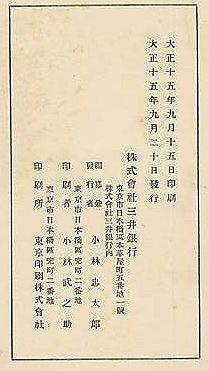 大正十五年九月十五日印刷
大正十五年九月二十日發行
株式會社三井銀行
東京市日本橋區本革屋町五番地一號
株式會社三井銀行内
編纂兼
發行者 小林忠太郎
東京市日本橋區兜町二番地
印刷者 小林武之助
東京市日本橋區兜町二番地
印刷所 東京印刷株式會社